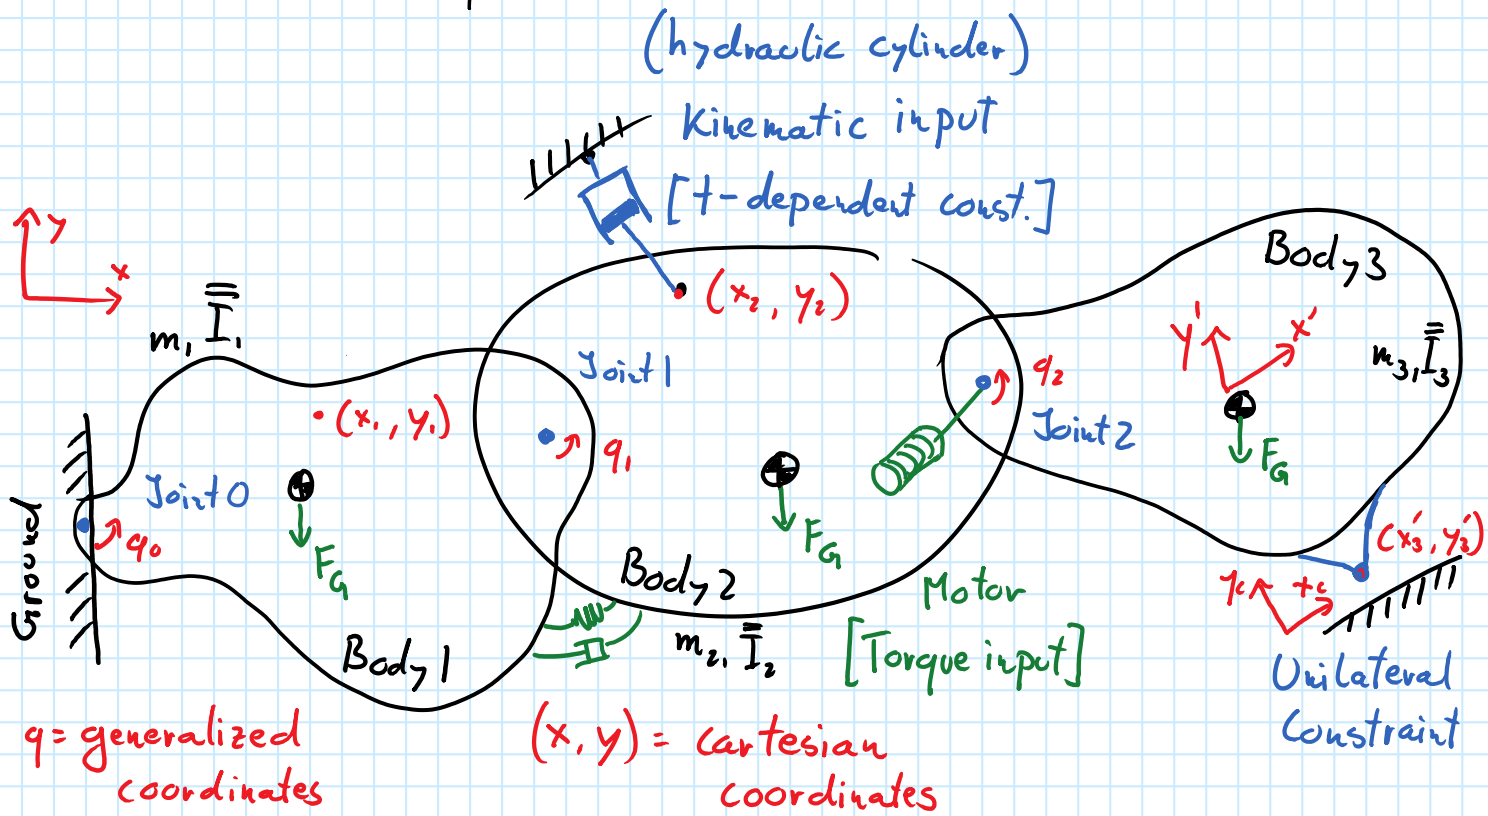 (hydraulic cylinder)
Kinematic input
[t-dependent const.]
y
x
m₁, I̿₁
(x₁, y₁)
Joint 0
q₀
F_G
Ground
Body 1
Joint 1
q₁
(x₂, y₂)
F_G
Body 2
m₂, I̿₂
q₂
Joint 2
Motor
[Torque input]
Body 3
y' x'
m₃, I̿₃
F_G
(x₃', y₃')
y_c x_c
Unilateral
Constraint
q = generalized
coordinates
(x, y) = cartesian
coordinates